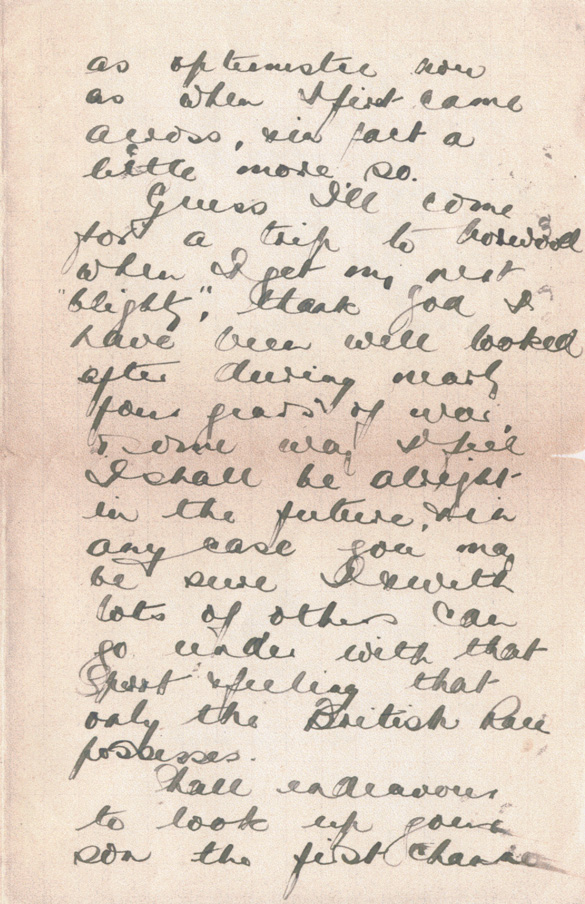 as optimistic now
as when I first came
across, & in fact a
little more so.
Guess I'll come
for a trip to
when I get my next
"blighty", thank God I
have been well looked
after during nearly
four years of war
& some way I feel
I shall be alright
in the future, & in
any case you may
be sure I & with
lots of others can
go under with that
spirit & feeling that
only the British race
possesses.
Shall endeavour
to look up your
son the first chance